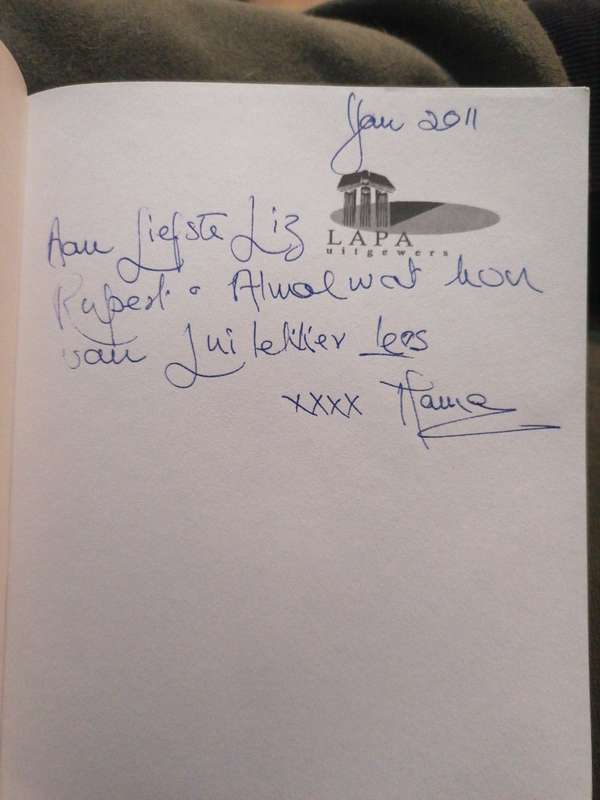 Jan 2011
LAPA
uitgewers
Aan Liefste Liz
Rupert & Almal wat hou
van Lui lekker lees
xxxx Mama